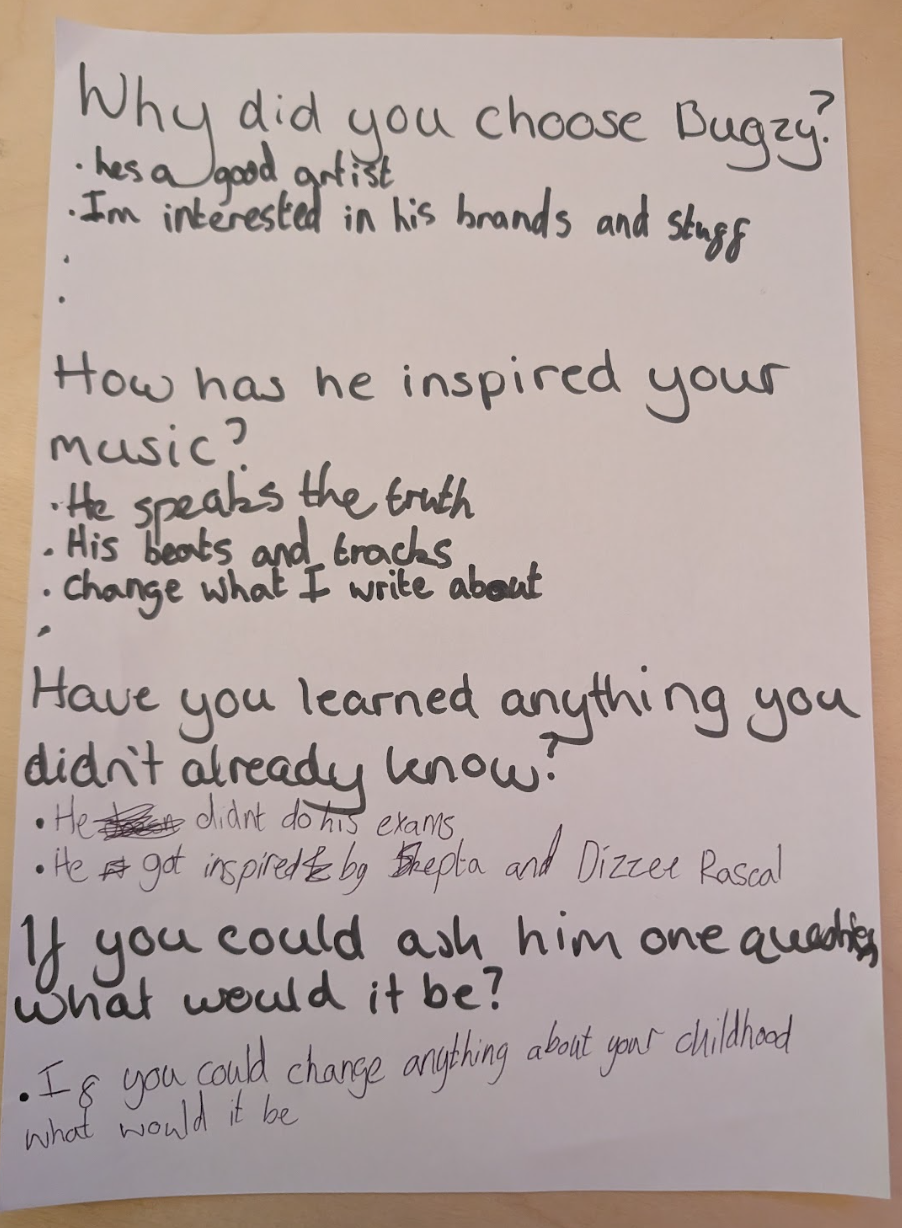 Why did you choose Bugzy?
· hes a good artist
· Im interested in his brands and stuff
·
·
How has he inspired your
music?
· He speaks the truth
· His beats and tracks
· Change what I write about
·
Have you learned anything you
didn't already know?
· He didnt do his exams
· He got inspired by Skepta and Dizzee Rascal
If you could ask him one question,
what would it be?
· If you could change anything about your childhood
what would it be